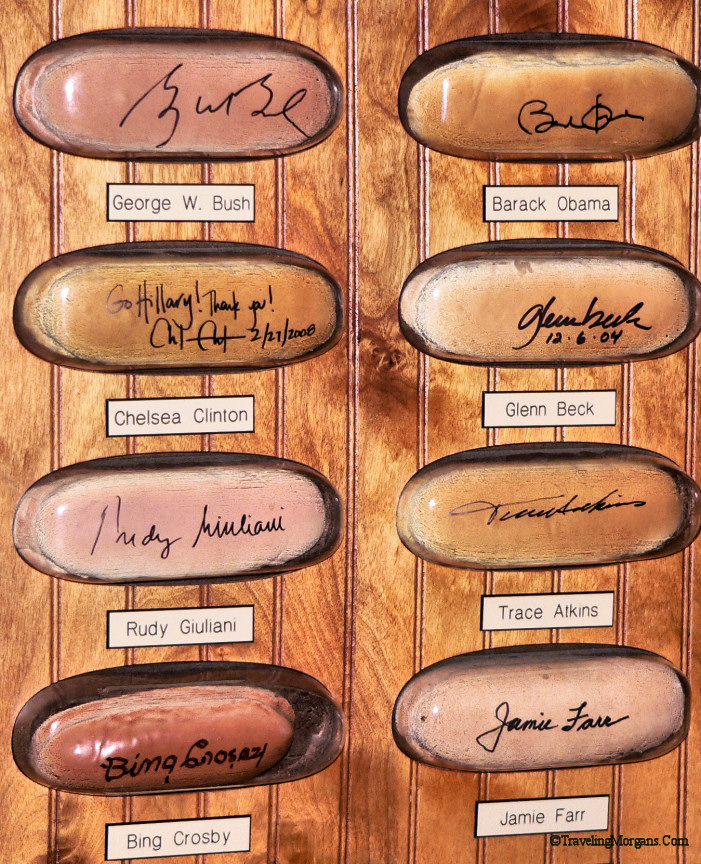 George W. Bush
Barack Obama
Go Hillary! Thank you!
2/27/2008
glennbeck
12·6·04
Chelsea Clinton
Glenn Beck
Rudy Giuliani
Rudy Giuliani
Trace Atkins
Bing Crosby
Jamie Farr
Bing Crosby
Jamie Farr
©TravelingMorgans.Com